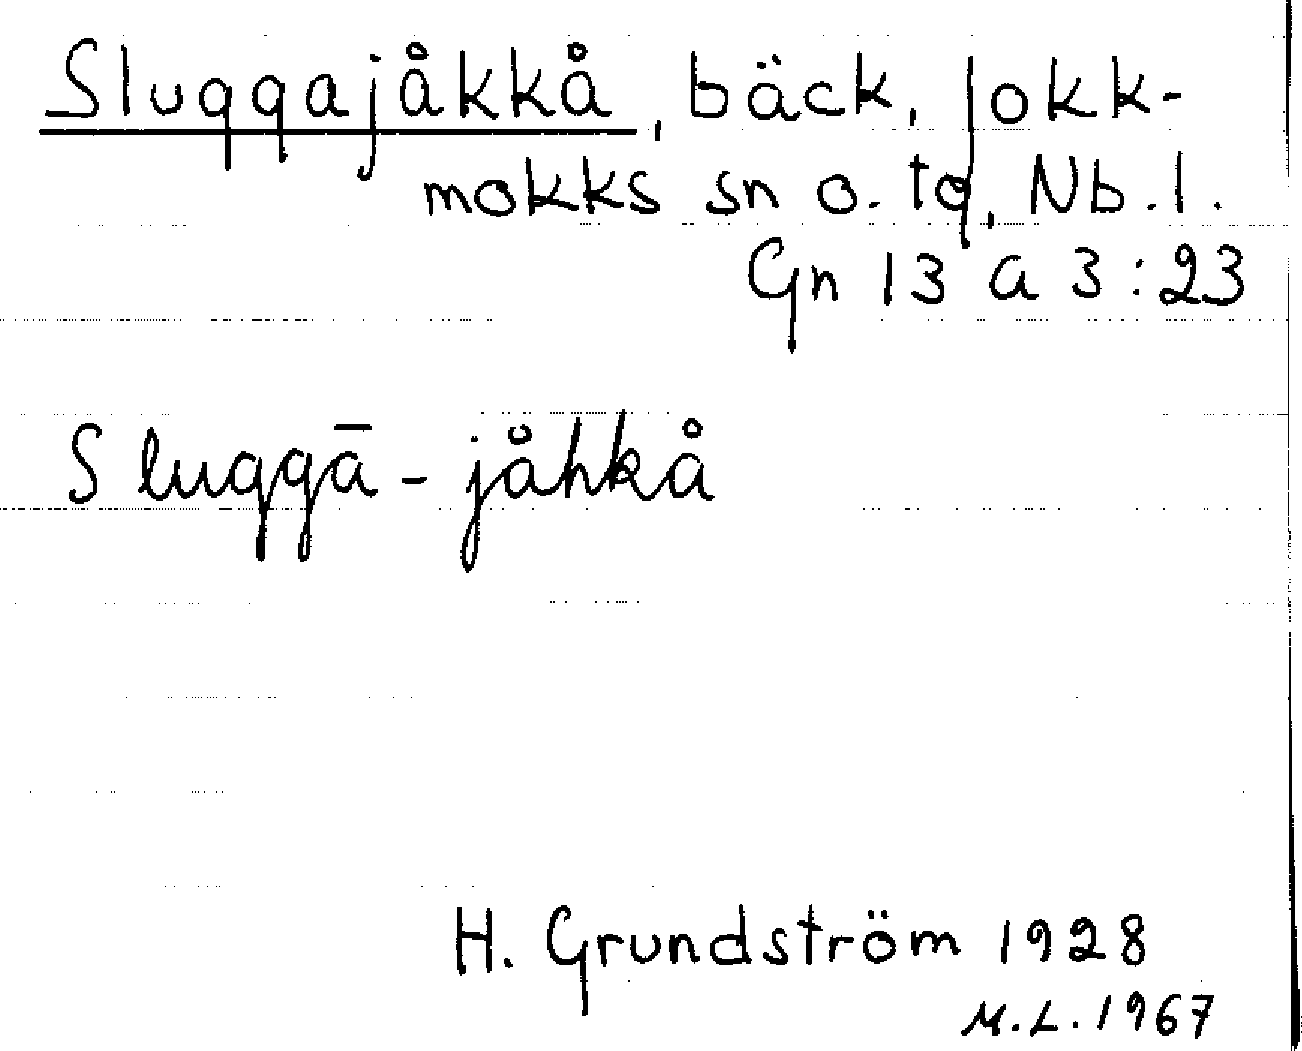 Sluggajåkkå, bäck, Jokk-
mokks sn o. tg, Nb. l.
Gn 13 a 3:23
Sluggā-jåhkå
H. Grundström 1928
M.L. 1967